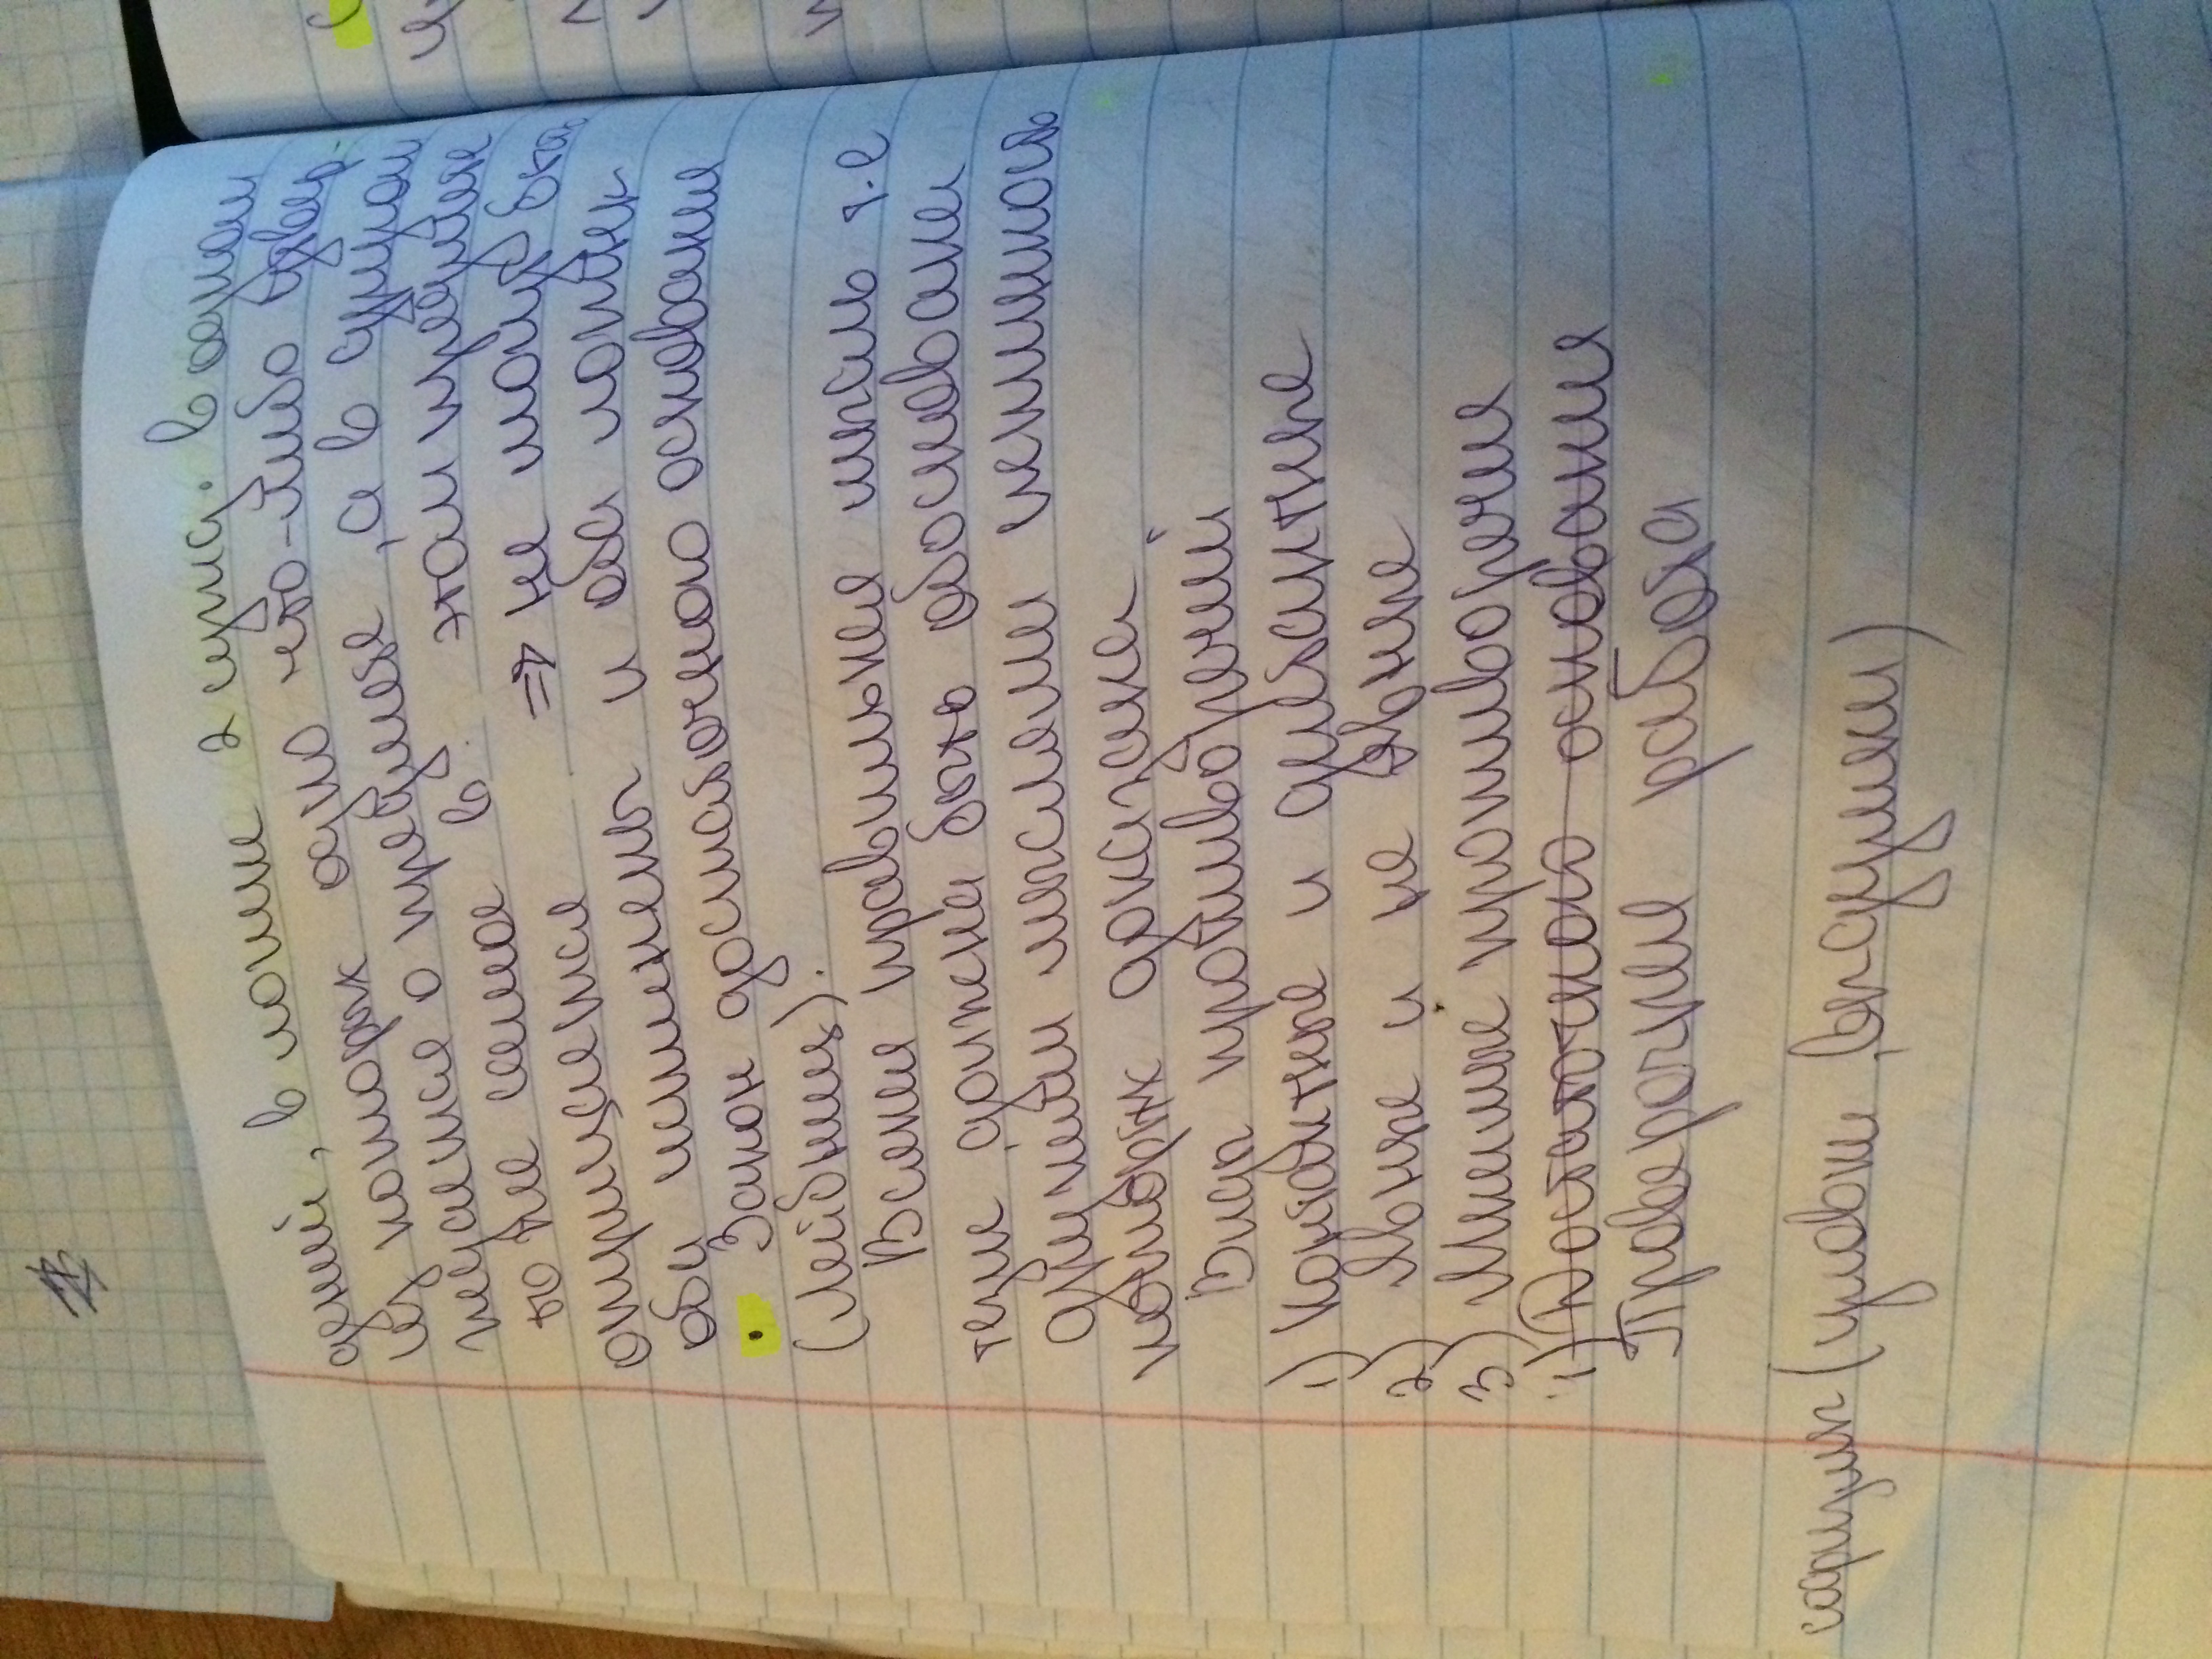 дений, в логике 2 сужд. в одном
из которых одно что-либо утвер-
ждается о предмете, а в другом
то же самое в этом предмете
отрицается ⇒ не могут быть
оба истинены и оба ложнек
• Закон достаточного основания
(Лейбниц).
Всякая правильная мысль т.е
тезис, должна быть обоснована
другими мыслями истинность
которых доказана.
Виды противоречий
1) Контактные и дистантные
2) Явные и не явные
3) Мнимые противоречия
4) Достаточного основания
Проверочная работа
софизмы (уловки, выдумки)